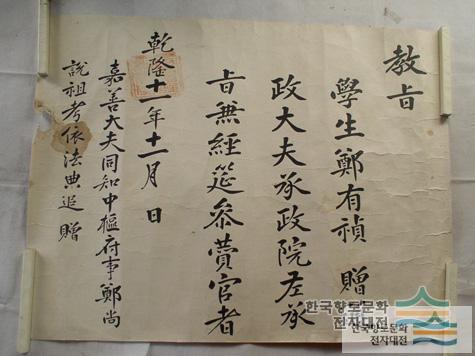 教旨
學生鄭有禎 贈
政大夫承政院左承
旨兼經筵參贊官者
乾隆十一年十一月 日
嘉善大夫同知中樞府事鄭尚
說祖考依法典追贈
한국향토문화
전자대전
한국향토문화
전자대전